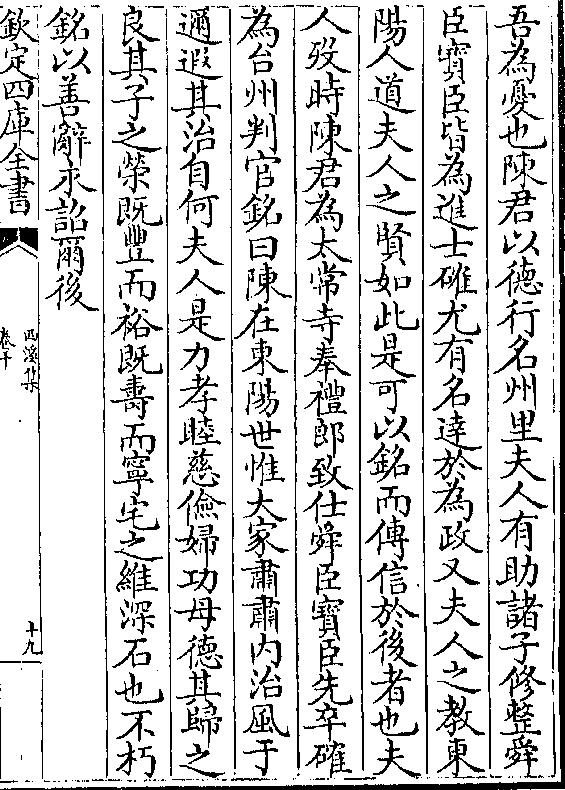 吾為憂也陳君以德行名州里夫人有助諸子修整舜
臣寶臣皆為進士確尤有名達於為政又夫人之教東
陽人道夫人之賢如此是可以銘而傳信於後者也夫
人歿時陳君為太常寺奉禮郎致仕舜臣寶臣先卒確
為台州判官銘曰陳在東陽世惟大家肅肅内治風于
邇遐其治自何夫人是力孝睦慈儉婦功母德其歸之
良其子之榮既豐而裕既壽而寧宅之維深石也不朽
銘以善辭永詔爾後
欽定四庫全書
西溪集
卷十
十九